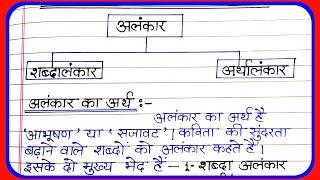 अलंकार
शब्दालंकार अर्थालंकार
अलंकार का अर्थ :-
अलंकार का अर्थ है
'आभूषण' या 'सजावट'। कविता की सुंदरता
बढ़ाने वाले शब्दों को अलंकार कहते हैं।
इसके दो मुख्य भेद हैं – 1- शब्दा अलंकार